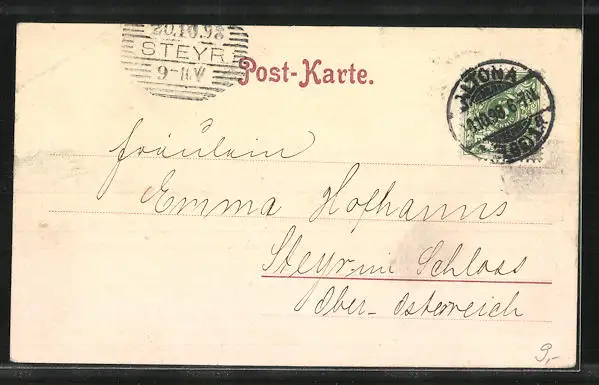 20.10.98
STEYR.
9-11.V
Post-Karte.
ALTONA
Fräulein
Emma Hofhanns
Steyr im Schloss
Ober-Österreich
9,-